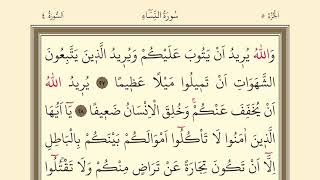 الجزء ٥ سورة النساء السورة ٤
وَاللّٰهُ يُر۪يدُ اَنْ يَتُوبَ عَلَيْكُمْ وَيُر۪يدُ الَّذ۪ينَ يَتَّبِعُونَ
الشَّهَوَاتِ اَنْ تَم۪يلُوا مَيْلًا عَظ۪يمًا ﴿٢٧﴾ يُر۪يدُ اللّٰهُ
اَنْ يُخَفِّفَ عَنْكُمْۚ وَخُلِقَ الْاِنْسَانُ ضَع۪يفًا ﴿٢٨﴾ يَٓا اَيُّهَا
الَّذ۪ينَ اٰمَنُوا لَا تَأْكُلُٓوا اَمْوَالَكُمْ بَيْنَكُمْ بِالْبَاطِلِ
اِلَّٓا اَنْ تَكُونَ تِجَارَةً عَنْ تَرَاضٍ مِنْكُمْ وَلَا تَقْتُلُٓوا